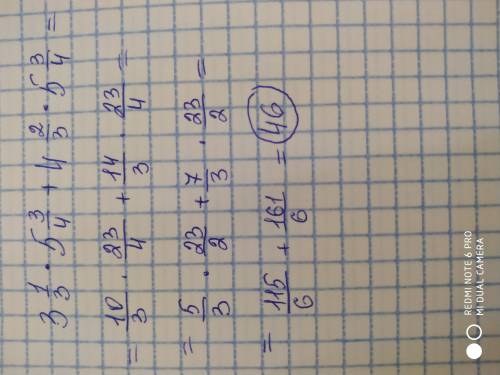 3 1/3 · 5 3/4 + 4 2/3 · 5 3/4 =
= 10/3 · 23/4 + 14/3 · 23/4 =
= 5/3 · 23/2 + 7/3 · 23/2 =
= 115/6 + 161/6 = 46
REDMI NOTE 6 PRO
MI DUAL CAMERA